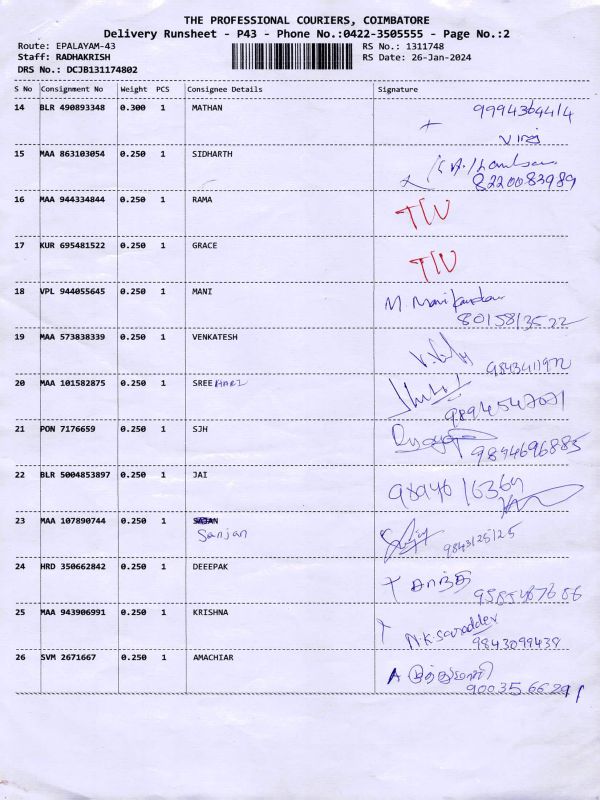 THE PROFESSIONAL COURIERS, COIMBATORE
Delivery Runsheet - P43 - Phone No.:0422-3505555 - Page No.:2
Route: EPALAYAM-43 RS No.: 1311748
Staff: RADHAKRISH RS Date: 26-Jan-2024
DRS No.: DCJB131174802
S No Consignment No Weight PCS Consignee Details Signature
14 BLR 490893348 0.300 1 MATHAN
15 MAA 863103054 0.250 1 SIDHARTH
8220083989
16 MAA 944334844 0.250 1 RAMA
17 KUR 695481522 0.250 1 GRACE
18 VPL 944055645 0.250 1 MANI M Manikandan
8015813522
19 MAA 573838339 0.250 1 VENKATESH
9843411972
20 MAA 101582875 0.250 1 SREE HARI
9894547071
21 PON 7176659 0.250 1 SJH
9894696885
22 BLR 5004853897 0.250 1 JAI
23 MAA 107890744 0.250 1 SAJAN
Sanjan 9843125125
24 HRD 350662842 0.250 1 DEEEPAK சாந்தி
25 MAA 943906991 0.250 1 KRISHNA
9843099439
26 SVM 2671667 0.250 1 AMACHIAR